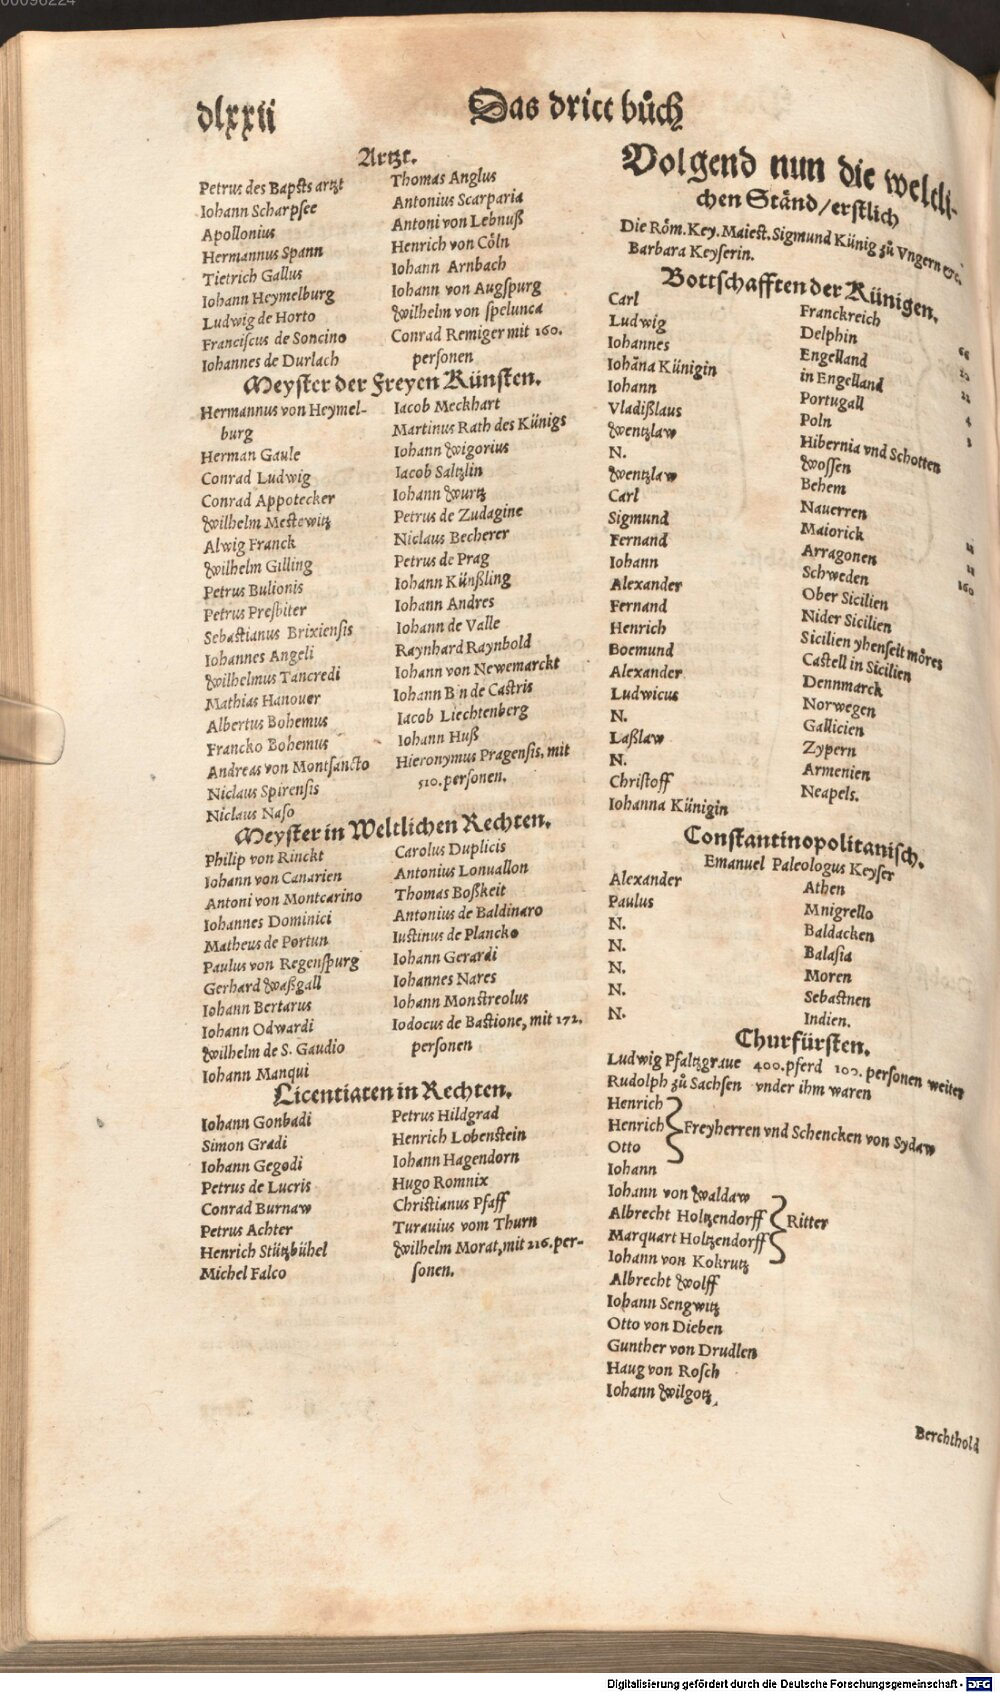 00096224
dlxxii
Das dritt bůch
Artzt.
Petrus des Bapsts artzt
Iohann Scharpsee
Apollonius
Hermannus Spann
Tietrich Gallus
Iohann Heymelburg
Ludwig de Horto
Franciscus de Soncino
Iohannes de Durlach
Thomas Anglus
Antonius Scarparia
Antoni von Lebnuß
Henrich von Cöln
Iohann Arnbach
Iohann von Augspurg
Wilhelm von spelunca
Conrad Remiger mit 160.
personen
Meyster der Freyen Künsten.
Hermannus von Heymel-
burg
Herman Gaule
Conrad Ludwig
Conrad Appotecker
Wilhelm Mestewitz
Alwig Franck
Wilhelm Gilling
Petrus Bulionis
Petrus Presbiter
Sebastianus Brixiensis
Iohannes Angeli
Wilhelmus Tancredi
Mathias Hanouer
Albertus Bohemus
Francko Bohemus
Andreas von Montsancto
Niclaus Spirensis
Niclaus Naso
Iacob Meckhart
Martinus Rath des Künigs
Iohann Wigorius
Iacob Saltzlin
Iohann Wurtz
Petrus de Zudagine
Niclaus Becherer
Petrus de Prag
Iohann Künßling
Iohann Andres
Iohann de Valle
Raynhard Raynbold
Iohann von Newemarckt
Iohann B n de Castris
Iacob Liechtenberg
Iohann Huß
Hieronymus Pragensis, mit
510. personen.
Meyster in Weltlichen Rechten.
Philip von Rinckt
Iohann von Canarien
Antoni von Montcarino
Iohannes Dominici
Matheus de Portun
Paulus von Regenspurg
Gerhard Waßgall
Iohann Bertarus
Iohann Odwardi
Wilhelm de S. Gaudio
Iohann Manqui
Carolus Duplicis
Antonius Lonuallon
Thomas Boßkeit
Antonius de Baldinaro
Iustinus de Plancko
Iohann Gerardi
Iohannes Nares
Iohann Monstreolus
Iodocus de Bastione, mit 172.
personen
Licentiaten in Rechten.
Iohann Gonbadi
Simon Gradi
Iohann Gegodi
Petrus de Lucris
Conrad Burnaw
Petrus Achter
Henrich Stützbühel
Michel Falco
Petrus Hildgrad
Henrich Lobenstein
Iohann Hagendorn
Hugo Romnix
Christianus Pfaff
Turauius vom Thurn
Wilhelm Morat, mit 216. per-
sonen.
Volgend nun die weltli-
chen Ständ/erstlich
Die Röm. Key. Maiest. Sigmund Künig zů Vngern &c.
Barbara Keyserin.
Bottschafften der Künigen.
Carl
Ludwig
Iohannes
Iohāna Künigin
Iohann
Vladißlaus
Wentzlaw
N.
Wentzlaw
Carl
Sigmund
Fernand
Iohann
Alexander
Fernand
Henrich
Boemund
Alexander
Ludwicus
N.
Laßlaw
N.
Christoff
Iohanna Künigin
Franckreich
Delphin
Engelland
in Engelland
Portugall
Poln
Hibernia vnd Schotten
Wossen
Behem
Nauerren
Maiorick
Arragonen
Schweden
Ober Sicilien
Nider Sicilien
Sicilien yhenseit möres
Castell in Sicilien
Dennmarck
Norwegen
Gallicien
Zypern
Armenien
Neapels.
160
Constantinopolitanisch.
Emanuel Paleologus Keyser
Alexander
Paulus
N.
N.
N.
N.
N.
Athen
Mnigrello
Baldacken
Balasia
Moren
Sebastnen
Indien.
Churfürsten.
Ludwig Pfaltzgraue 400. pferd 100. personen weiter
Rudolph zů Sachsen vnder ihm waren
Henrich
Henrich Freyherren vnd Schencken von Sydaw
Otto
Iohann
Iohann von Waldaw
Albrecht Holtzendorff Ritter
Marquart Holtzendorff
Iohann von Kokrutz
Albrecht Wolff
Iohann Sengwitz
Otto von Dieben
Gunther von Drudlen
Haug von Rosch
Iohann Wilgotz
Berchthold
Digitalisierung gefördert durch die Deutsche Forschungsgemeinschaft - DFG